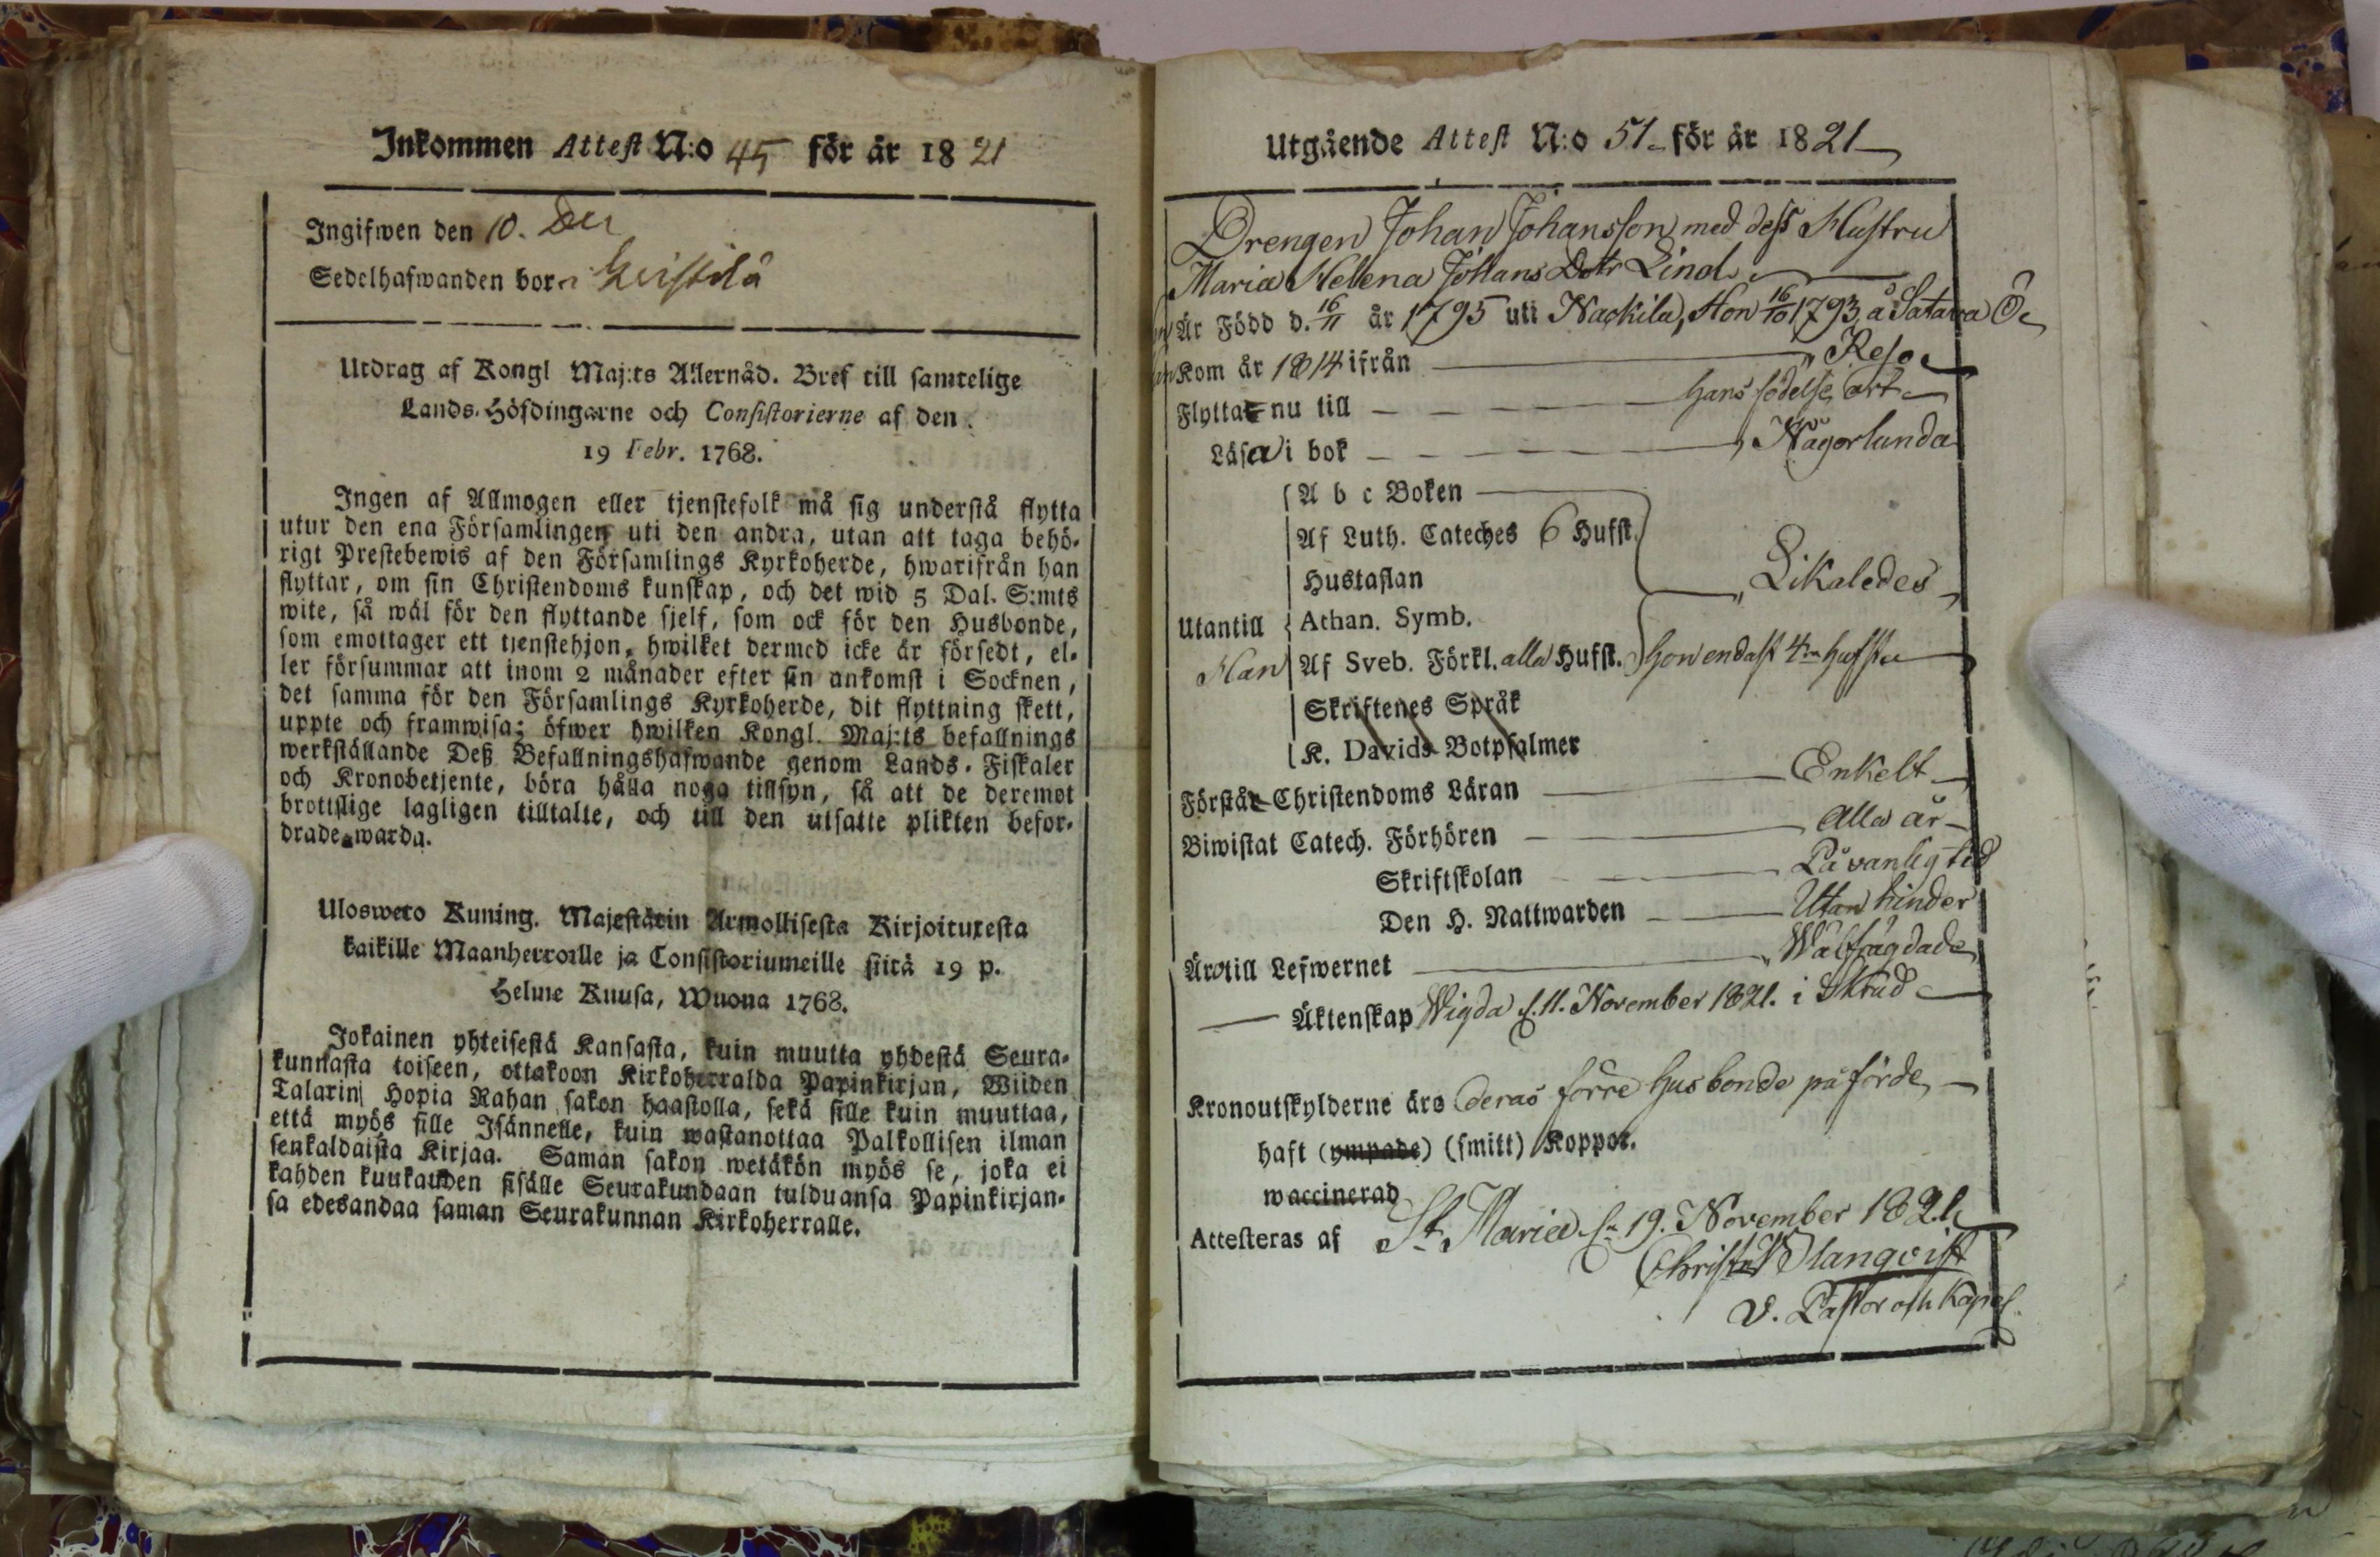 Inkommen Attest N:o 45 för år 1821
Ingifwen den 10. Dec
Sedelhafwanden bor i
Utdrag af Kongl Maj:ts Allernåd. Bref till samtelige
Lands-Höfdingarne och Consistorierne af den
19 Febr. 1768.
Ingen af Allmogen eller tjenstefolk må sig understå flytta
utur den ena Församlingen uti den andra, utan att taga behö-
rigt Prestebewis af den Församlings Kyrkoherde, hwarifrån han
flyttar, om sin Christendoms kunskap, och det wid 5 Dal. S:mts
wite, så wäl för den flyttande sjelf, som ock för den Husbonde,
som emottager ett tjenstehjon, hwilket dermed icke är försedt, el-
ler försummar att inom 2 månader efter sin ankomst i Socknen,
det samma för den Församlings Kyrkoherde, dit flyttning skett,
uppte och framwisa; öfwer hwilken Kongl. Maj:ts befallnings
werkställande Deß Befallningshafwande genom Lands-Fiskaler
och Kronobetjente, böra hålla noga tillsyn, så att de deremot
brottslige lagligen tilltalte, och till den utsatte plikten befor-
drade warda.
Ulosweto Kuning. Majestätin Armollisesta Kirjoituxesta
kaikille Maanherroille ja Consistoriumeille siitä 19 p.
Helme Kuusa, Wuona 1768.
Jokainen yhteisestä Kansasta, kuin muutta yhdestä Seura-
kunnasta toiseen, ottakoon Kirkoherralda Papinkirjan, Wiiden
Talarin Hopia Rahan sakon haastolla, sekä sille kuin muuttaa,
että myös sille Isännelle, kuin wastanottaa Palkollisen ilman
senkaldaista Kirjaa. Saman sakon wetäkön myös se, joka ei
kahden kuukauden sisälle Seurakundaan tulduansa Papinkirjan-
sa edesandaa saman Seurakunnan Kirkoherralle.
Utgående Attest N:o 51 för år 1821
Drengen Johan Johansson med dess Hustru
Maria Helena Johans Dotr Lind
Är Född d. 16/11 år 1795 uti Nackila, Hon 16/10 1793 å Satava Ö
Kom år 1814 ifrån Reso
Flytta nu till hans födelse ort
Läsa i bok Någorlunda
A b c Boken
Af Luth. Cateches 6 Hufst.
Hustaflan Likaledes
Utantill Athan. Symb.
Han Af Sveb. Förkl. alla Hufst. hon endast 4ra hufstn
Skriftenes Språk
K. Davids Botpsalmer
Förstår Christendoms Läran Enkelt
Biwistat Catech. Förhören Alla år
Skriftskolan På vanlig tid
Den H. Nattwarden Utan hinder
Äro till Lefwernet Wälfrägdade
Äktenskap Wigda d. 11. November 1821. i Skrud
Kronoutskylderne äro deras förre husbonde påförde
haft (ympade) (smitt) Koppor.
waccinerad
Attesteras af St Mariæ d. 19. November 1821
Christ. Blanqvist
V. Pastor och Kapel.